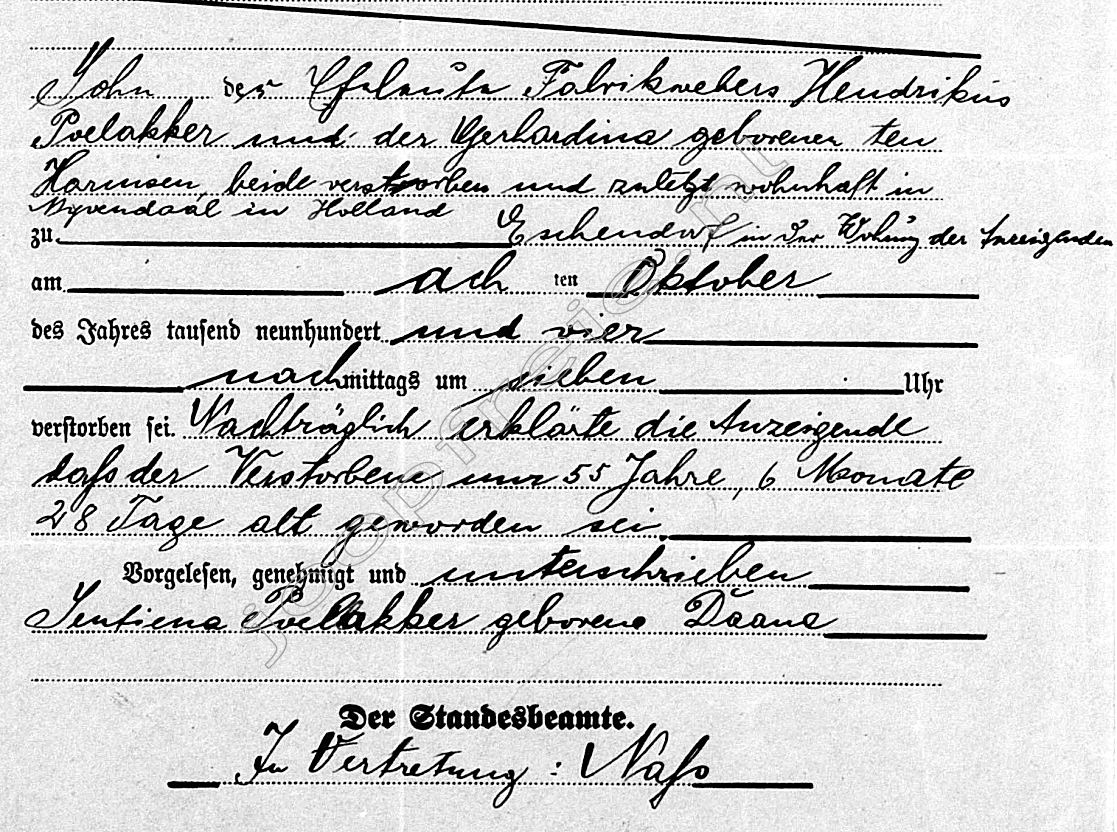 Sohn der Eheleute Fabrikwebers Hendrikus
Poelakker und der Gerhardina geborenen ten
Harmsen, beide verstorben und zuletzt wohnhaft in
Nyvendaal in Holland
zu Eschendorf in der Wohnung der Anzeigenden
am acht ten Oktober
des Jahres tausend neunhundert und vier
nachmittags um sieben Uhr
verstorben sei. Nachträglich erklärte die Anzeigende
daß der Verstorbene nur 55 Jahre, 6 Monate
28 Tage alt geworden sei.
Vorgelesen, genehmigt und unterschrieben
Poelakker geborene Daane
Der Standesbeamte.
In Vertretung: Naß